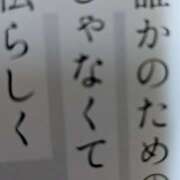 誰かのための
じゃなくて
私らしく